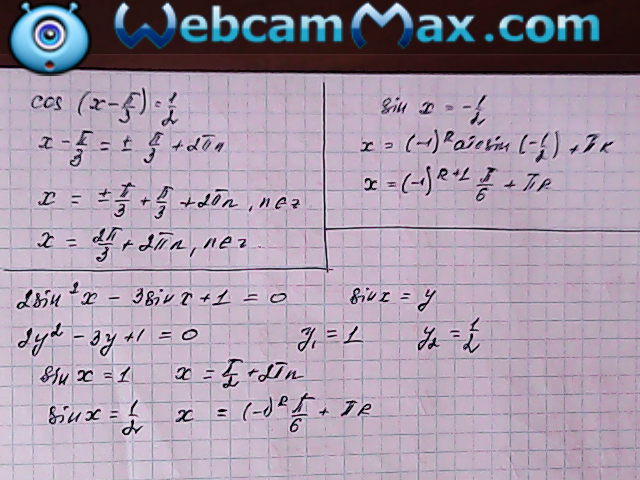 WebcamMax.com
cos (x - π/3) = 1/2
x - π/3 = ± π/3 + 2πn
x = ± π/3 + π/3 + 2πn, n∈z
x = 2π/3 + 2πn, n∈z.
sin x = -1/2
x = (-1)^k arcsin (-1/2) + πk
x = (-1)^k+1 π/6 + πk
2sin²x - 3sinx + 1 = 0 sinx = y
2y² - 3y + 1 = 0 y₁ = 1 y₂ = 1/2
sin x = 1 x = π/2 + 2πn
sin x = 1/2 x = (-1)^k π/6 + πk